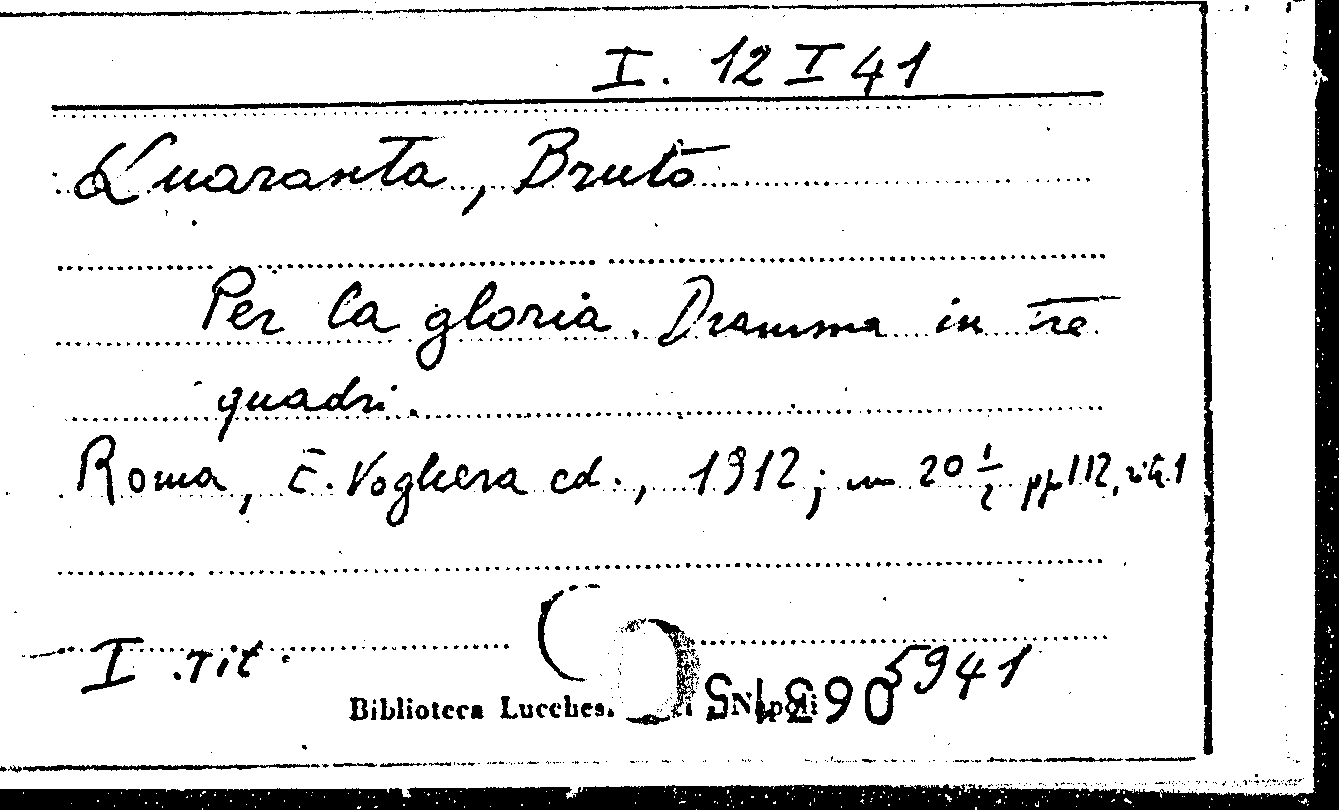 I. 12 I 41
Quaranta, Bruto
Per la gloria. Dramma in tre
quadri.
Roma, E. Voghera ed., 1912; in 20 1/2 pp 112, rit. 1
I rit.
5941
Biblioteca Lucches. Napoli